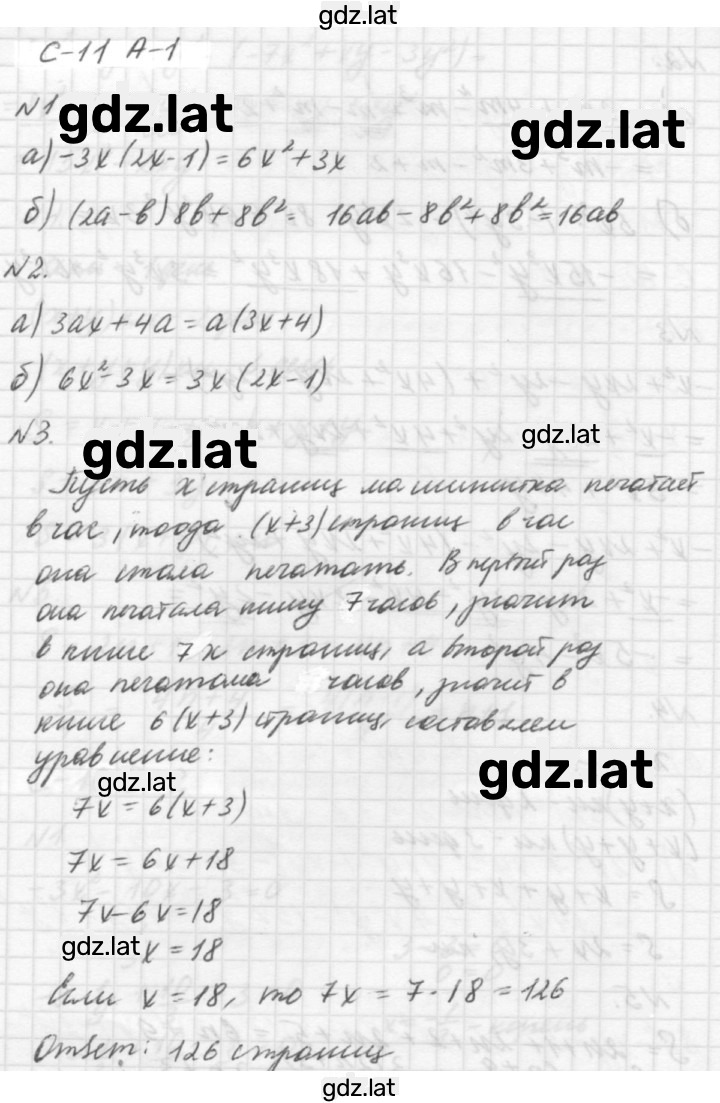 gdz.lat
С-11 А-1
№1
gdz.lat
gdz.lat
а) -3x(2x-1) = 6x²+3x
б) (2a-b)8b+8b² = 16ab-8b²+8b²=16ab
№2.
а) 3ax+4a = a(3x+4)
б) 6x²-3x = 3x(2x-1)
№3.
gdz.lat
gdz.lat
Пусть x страниц машинистка печатает
в час, тогда (x+3) страниц в час
она стала печатать. В первый раз
она печатала книгу 7 часов, значит
в книге 7x страниц, а второй раз
она печатала часов, значит в
книге 6(x+3) страниц, составляем
уравнение:
gdz.lat
gdz.lat
7x = 6(x+3)
7x = 6x+18
7x-6x=18
gdz.lat
x = 18
Если x = 18, то 7x = 7·18 = 126
Ответ: 126 страниц
gdz.lat